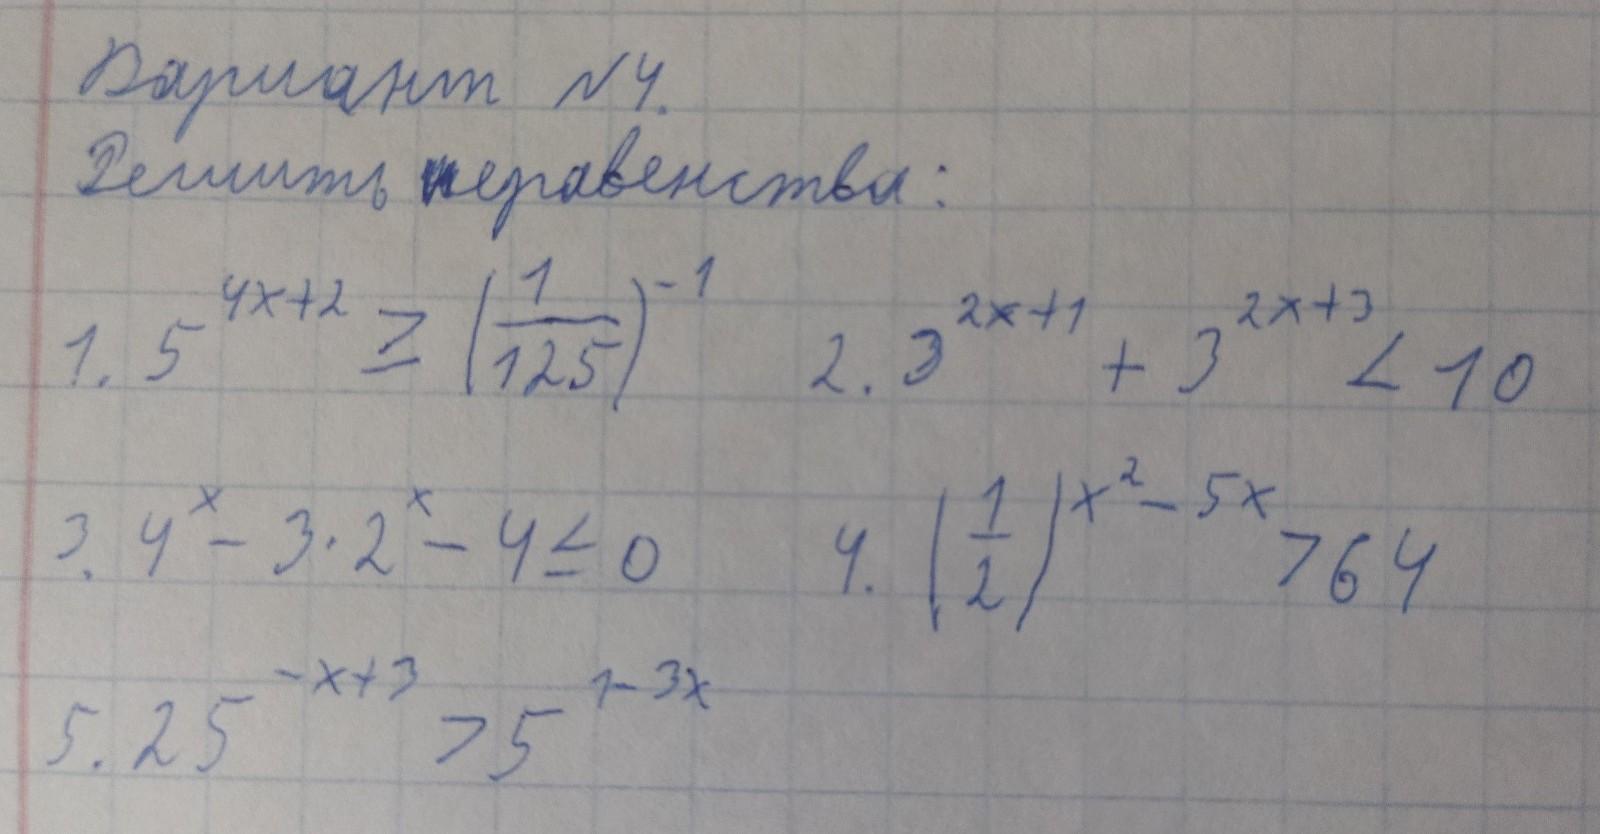 Вариант №4.
Решить неравенства:
1. 5^(4x+2) ≥ (1/125)^(-1) 2. 3^(2x+1) + 3^(2x+3) < 10
3. 4^x - 3·2^x - 4 ≤ 0 4. (1/2)^(x^2 - 5x) > 64
5. 25^(-x+3) > 5^(1-3x)